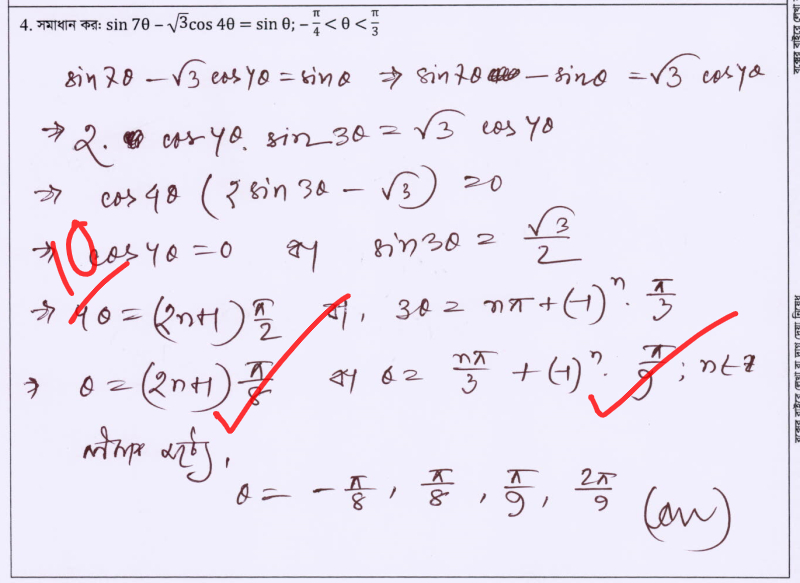 4. সমাধান কর: sin 7θ – √3cos 4θ = sin θ; –π/4 < θ < π/3
sin 7θ – √3 cos 4θ = sin θ ⇒ sin 7θ – sin θ = √3 cos 4θ
⇒ 2. cos 4θ. sin 3θ = √3 cos 4θ
⇒ cos 4θ (2 sin 3θ – √3) = 0
⇒ cos 4θ = 0 বা sin 3θ = √3/2
10
⇒ 4θ = (2n+1) π/2 বা, 3θ = nπ + (-1)ⁿ. π/3
⇒ θ = (2n+1) π/8 বা θ = nπ/3 + (-1)ⁿ. π/9 ; n∈Z
θ = – π/8 , π/8 , π/9 , 2π/9 (Ans)